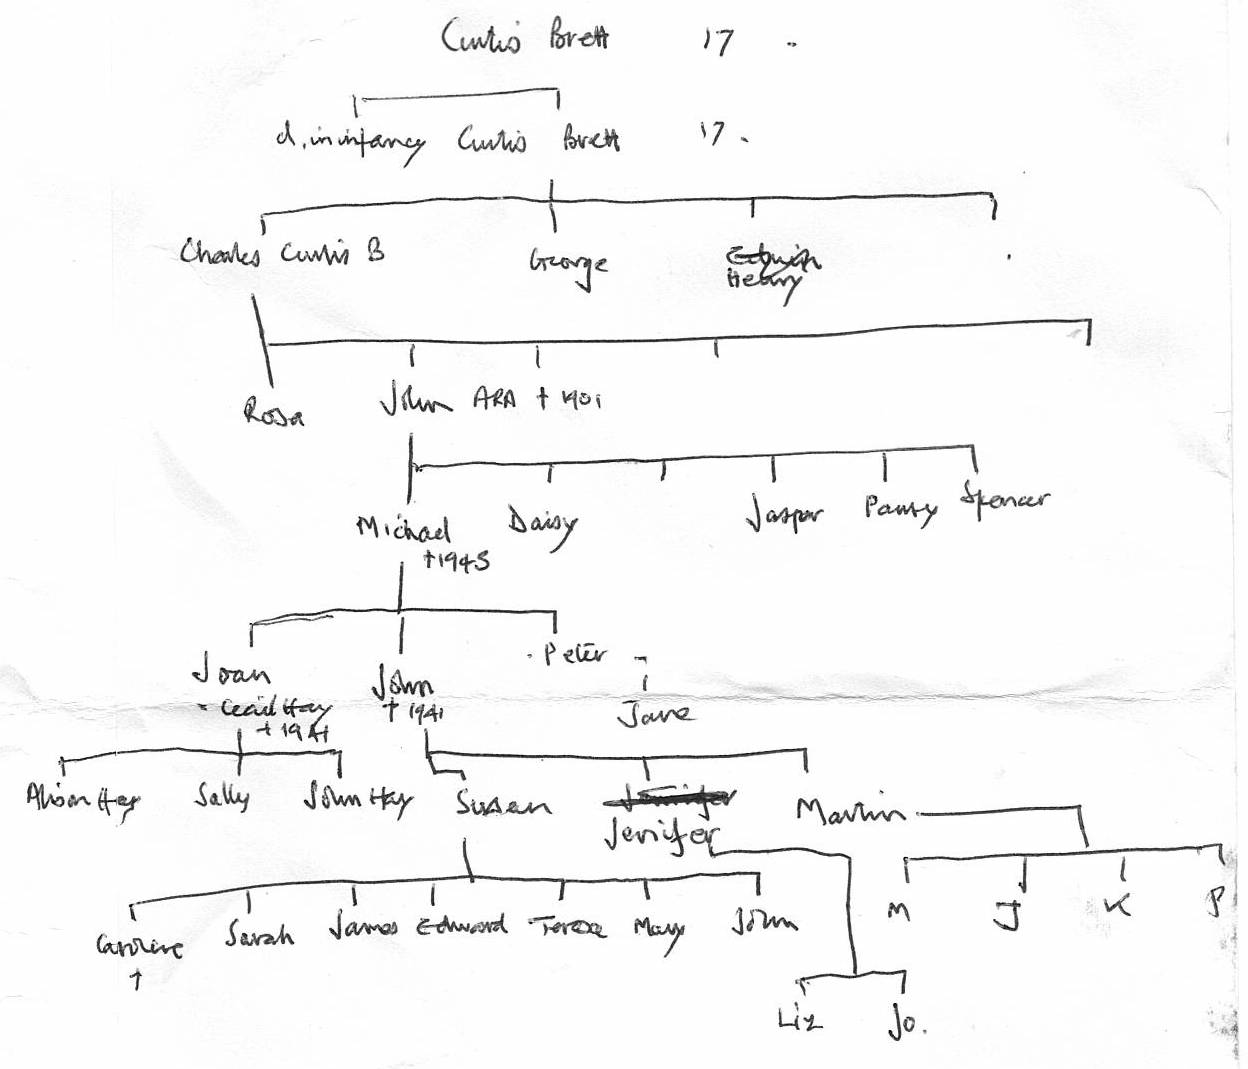 Curtis Brett 17 ..
d. in infancy Curtis Brett 17 .
Charles Curtis B George Edwin
Henry
Rosa John ARA † 1901
Michael Daisy Jasper Pansy Spencer
†1945
Joan John Peter
Cecil Hay † 1941 Jane
† 1941
Alison Hay Sally John Hay Susan Jennifer Martin
Jenifer
M J K P
Caroline Sarah James Edward Teresa Mary John
†
Liz Jo.